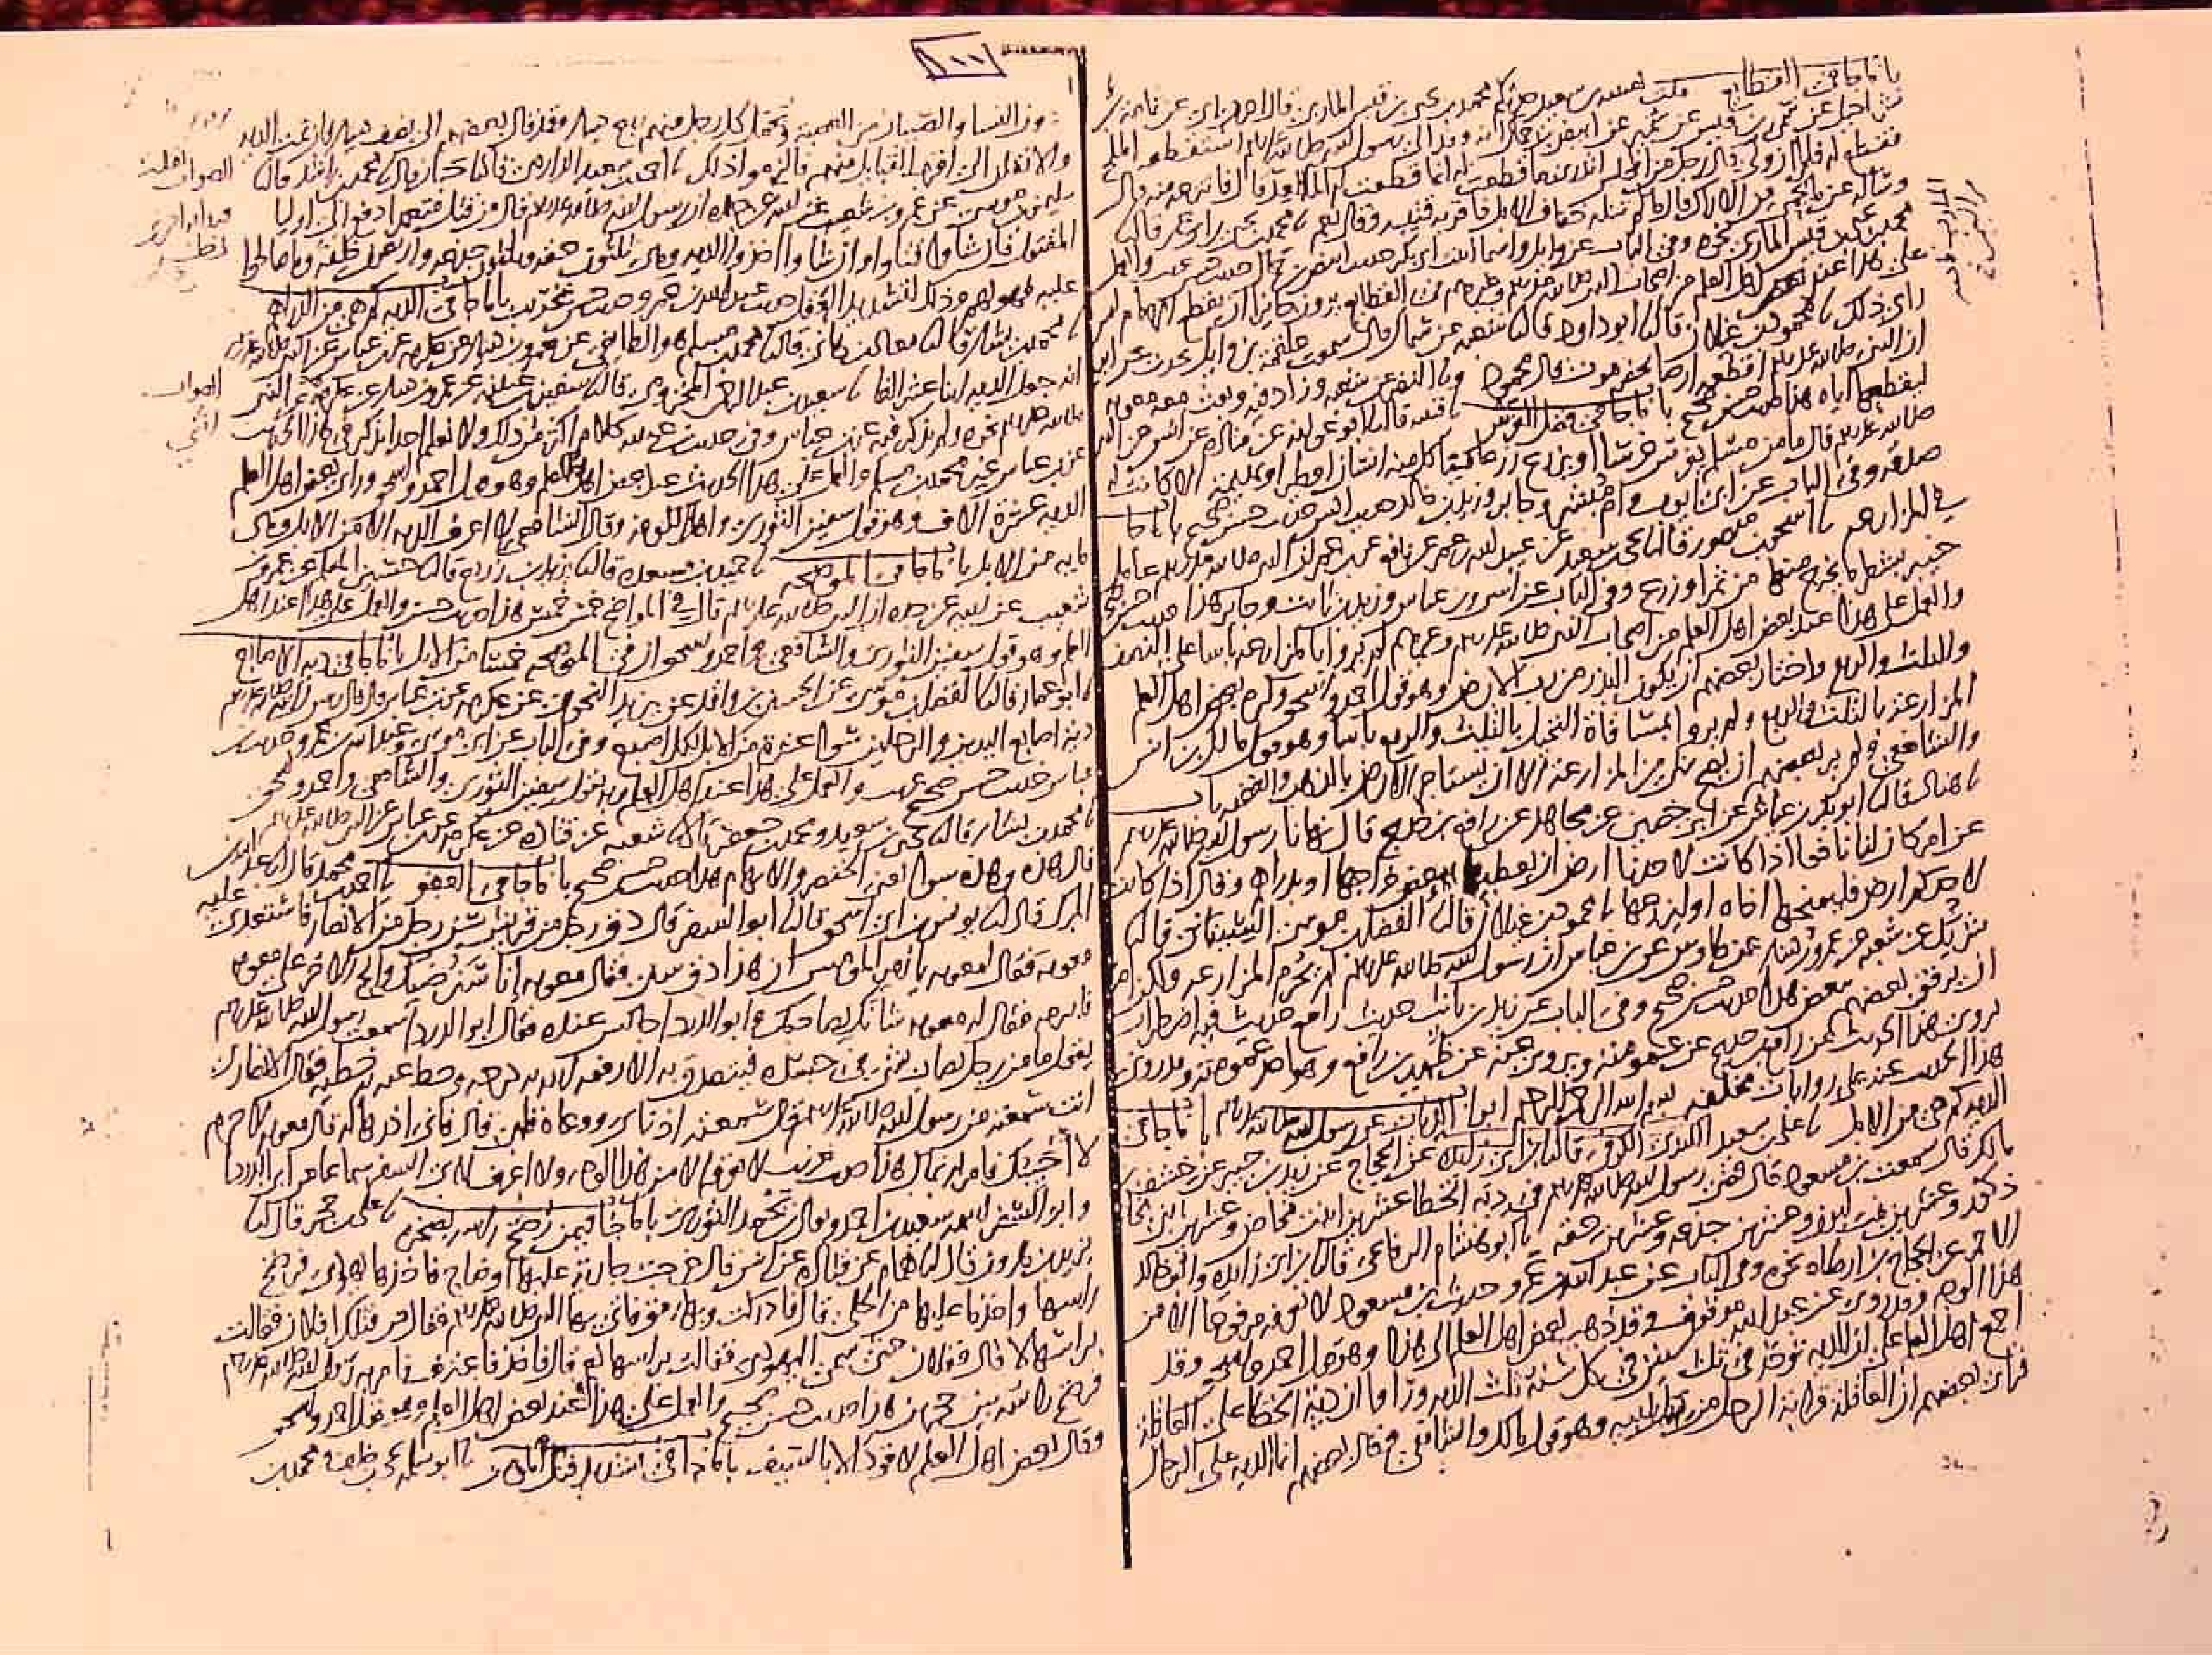 باب ما جا في القطايع قلت لقتيبة بن سعيد حدثكم محمد بن يحيى بن قيس الماربي قال اخبرني ابي عن ثمامة بن
شراحيل عن سمي بن قيس عن شمير عن ابيض بن حمال انه وفد الى رسول الله صلى الله عليه وسلم استقطعه الملح
فقطع له فلما ان ولى قال رجل من المجلس اتدري ما قطعت له انما قطعت له الما العد قال فانتزعه منه قال
وساله عن ما يحمى من الاراك قال ما لم تنله خفاف الابل فاقر به قتيبة وقال نعم نا محمد بن يحيى بن ابي عمر قال نا
محمد بن يحيى بن قيس الماربي نحوه وفي الباب عن وايل واسما ابنة ابي بكر حديث ابيض بن حمال حديث غريب والعمل
على هذا عند بعض اهل العلم من اصحاب النبي صلى الله عليه وسلم وغيرهم في القطايع يرون جايزا ان يقطع الامام لمن
راى ذلك نا محمود بن غيلان قال نا ابو داود قال نا شعبة عن سماك قال سمعت علقمة بن وايل يحدث عن ابيه
ان النبي صلى الله عليه وسلم اقطعه ارضا بحضرموت قال محمود ونا النضر عن شعبة وزاد فيه وبعث معه معوية
ليقطعها اياه هذا حديث حسن صحيح باب ما جا في فضل الغرس نا قتيبة قال نا ابو عوانة عن قتادة عن انس عن النبي
صلى الله عليه وسلم قال ما من مسلم يغرس غرسا او يزرع زرعا فياكل منه انسان او طير او بهيمة الا كانت له
صدقة وفي الباب عن ابي ايوب وام مبشر وجابر وزيد بن خالد حديث انس حديث حسن صحيح باب ما جا
في المزارعة نا اسحق بن منصور قال نا يحيى بن سعيد عن عبيد الله بن عمر عن نافع عن بن عمر ان النبي صلى الله عليه وسلم عامل
خيبر بشطر ما يخرج منها من ثمر او زرع وفي الباب عن انس وبن عباس وزيد بن ثابت وجابر هذا حديث حسن صحيح
والعمل على هذا عند بعض اهل العلم من اصحاب النبي صلى الله عليه وسلم وغيرهم لم يروا بالمزارعة باسا على النصف
والثلث والربع واختار بعضهم ان يكون البذر من رب الارض وهو قول احمد واسحق وكره بعض اهل العلم
المزارعة بالثلث والربع ولم يروا بمساقاة النخيل بالثلث والربع باسا وهو قول مالك بن انس
والشافعي ولم ير بعضهم ان يصح شي من المزارعة الا ان يستاجر الارض بالذهب والفضة باب
نا هناد قال نا ابو بكر بن عياش عن ابي حصين عن مجاهد عن رافع بن خديج قال نهانا رسول الله صلى الله عليه وسلم
عن امر كان لنا نافعا اذا كانت لاحدنا ارض ان يعطيها ببعض خراجها او بدراهم وقال اذا كانت
لاحدكم ارض فليمنحها اخاه او ليزرعها نا محمود بن غيلان قال نا الفضل بن موسى الشيباني قال نا
شريك عن شعبة عن عمرو بن دينار عن طاوس عن بن عباس ان رسول الله صلى الله عليه وسلم لم يحرم المزارعة ولكن امر
ان يرفق بعضهم ببعض هذا حديث حسن صحيح وفي الباب عن زيد بن ثابت حديث رافع حديث فيه اضطراب
يروى هذا الحديث عن رافع بن خديج عن عمومته ويروى عنه عن ظهير بن رافع وهو احد عمومته وقد روي
هذا الحديث عنه على روايات مختلفة بسم الله الرحمن الرحيم ابواب الديات عن رسول الله صلى الله عليه وسلم باب ما جا في
الدية كم هي من الابل نا علي بن سعيد الكندي الكوفي قال نا بن ابي زايدة عن الحجاج عن زيد بن جبير عن خشف بن
مالك قال سمعت بن مسعود قال قضى رسول الله صلى الله عليه وسلم في دية الخطا عشرين ابنت مخاض وعشرين ابن مخاض
ذكور وعشرين بنت لبون وعشرين جذعة وعشرين حقة نا ابو هشام الرفاعي قال نا بن ابي زايدة وابو خالد
الاحمر عن الحجاج بن ارطاة نحوه وفي الباب عن عبد الله بن عمرو حديث بن مسعود لا نعرفه مرفوعا الا من
هذا الوجه وقد روي عن عبد الله موقوف وقد ذهب بعض اهل العلم الى هذا وهو قول احمد واسحق وقد
اجمع اهل العلم على ان الدية توخذ في ثلث سنين في كل سنة ثلث الدية وراوا ان دية الخطا على العاقلة
فراى بعضهم ان العاقلة قرابة الرجل من قبل ابيه وهو قول مالك والشافعي وقال بعضهم انما الدية على الرجال
١٠٠
دون النسا والصبيان من العصبة وتحمل كل رجل منهم ربع دينار وقد قال بعضهم الى نصف دينار فان تمت الدية
والا نظر الى اقرب القبايل منهم فالزموا ذلك نا احمد بن سعيد الدارمي قال نا حبان قال نا محمد بن راشد قال نا
سليمن بن موسى عن عمرو بن شعيب عن ابيه عن جده ان رسول الله صلى الله عليه وسلم قال من قتل متعمدا دفع الى اوليا
المقتول فان شاوا قتلوا وان شاوا اخذوا الدية وهي ثلثون حقة وثلثون جذعة واربعون خلفة وما صالحوا
عليه فهو لهم وذلك لتشديد العقل حديث عبد الله بن عمرو حديث حسن غريب باب ما جا في الدية كم هي من الدراهم
نا محمد بن بشار قال نا معاذ بن هاني قال نا محمد بن مسلم هو الطايفي عن عمرو بن دينار عن عكرمة عن بن عباس عن النبي صلى الله عليه وسلم
انه جعل الدية اثنا عشر الفا نا سعيد بن عبد الرحمن المخزومي قال نا سفين بن عيينة عن عمرو بن دينار عن عكرمة عن النبي
صلى الله عليه وسلم نحوه ولم يذكر فيه عن بن عباس وفي حديث بن عيينة كلام اكثر من ذلك ولا نعلم احدا يذكر في هذا الحديث
عن بن عباس غير محمد بن مسلم والعمل على هذا الحديث عند بعض اهل العلم وهو قول احمد واسحق وراى بعض اهل العلم
الدية عشرة الاف وهو قول سفين الثوري واهل الكوفة وقال الشافعي لا اعرف الدية الا من الابل وهي
ماية من الابل باب ما جا في الموضحة نا حميد بن مسعدة قال نا يزيد بن زريع قال نا حسين المعلم عن عمرو بن
شعيب عن ابيه عن جده ان النبي صلى الله عليه وسلم قال في المواضح خمس خمس هذا حديث حسن والعمل على هذا عند اهل
العلم وهو قول سفين الثوري والشافعي واحمد واسحق ان في الموضحة خمسا من الابل باب ما جا في دية الاصابع
نا ابو عمار قال نا الفضل بن موسى عن الحسين بن واقد عن يزيد النحوي عن عكرمة عن بن عباس قال قال رسول الله صلى الله عليه وسلم
دية اصابع اليدين والرجلين سوا عشرة من الابل لكل اصبع وفي الباب عن ابي موسى وعبد الله بن عمرو وحديث بن
عباس حديث حسن صحيح غريب والعمل على هذا عند اهل العلم وبه يقول سفين الثوري والشافعي واحمد واسحق
نا محمد بن بشار قال نا يحيى بن سعيد ومحمد بن جعفر قالا نا شعبة عن قتادة عن عكرمة عن بن عباس عن النبي صلى الله عليه وسلم
قال هذه وهذه سوا يعني الخنصر والابهام هذا حديث حسن صحيح باب ما جا في العفو نا احمد بن محمد قال نا عبد الله بن
المبرك قال نا يونس بن ابي اسحق قال نا ابو السفر قال دق رجل من قريش سن رجل من الانصار فاستعدى عليه
معوية فقال لمعوية يا امير المومنين ان هذا دق سني فقال معوية انا سنرضيك والح الاخر على معوية
فابرمه فقال له معوية شانك بصاحبك وابو الدردا جالس عنده فقال ابو الدردا سمعت رسول الله صلى الله عليه وسلم
يقول ما من رجل يصاب بشي في جسده فيتصدق به الا رفعه الله به درجة وحط عنه به خطية فقال الانصاري
انت سمعته من رسول الله صلى الله عليه وسلم قال سمعته اذناي ووعاه قلبي قال فاني اذرها له قال معوية لا جرم
لا اخيبك فامر له بمال هذا حديث غريب لا نعرفه الا من هذا الوجه ولا اعرف لابي السفر سماعا من ابي الدردا
وابو السفر اسمه سعيد بن احمد ويقال بن يحمد الثوري باب ما جا فيمن رضخ راسه بصخرة نا علي بن حجر قال نا
يزيد بن هرون قال نا همام عن قتادة عن انس قال خرجت جارية عليها اوضاح فاخذها يهودي فرضخ
راسها واخذ ما عليها من الحلي قال فادركت وبها رمق فاتي بها النبي صلى الله عليه وسلم فقال من قتلك افلان فقالت
براسها لا قال ففلان حتى سمي اليهودي فقالت براسها نعم قال فاخذ فاعترف فامر به رسول الله صلى الله عليه وسلم
فرضخ راسه بين حجرين هذا حديث حسن صحيح والعمل على هذا عند بعض اهل العلم وهو قول احمد واسحق
وقال بعض اهل العلم لا قود الا بالسيف باب ما جا في تشديد قتل المومن نا ابو سلمة يحيى بن خلف ومحمد بن